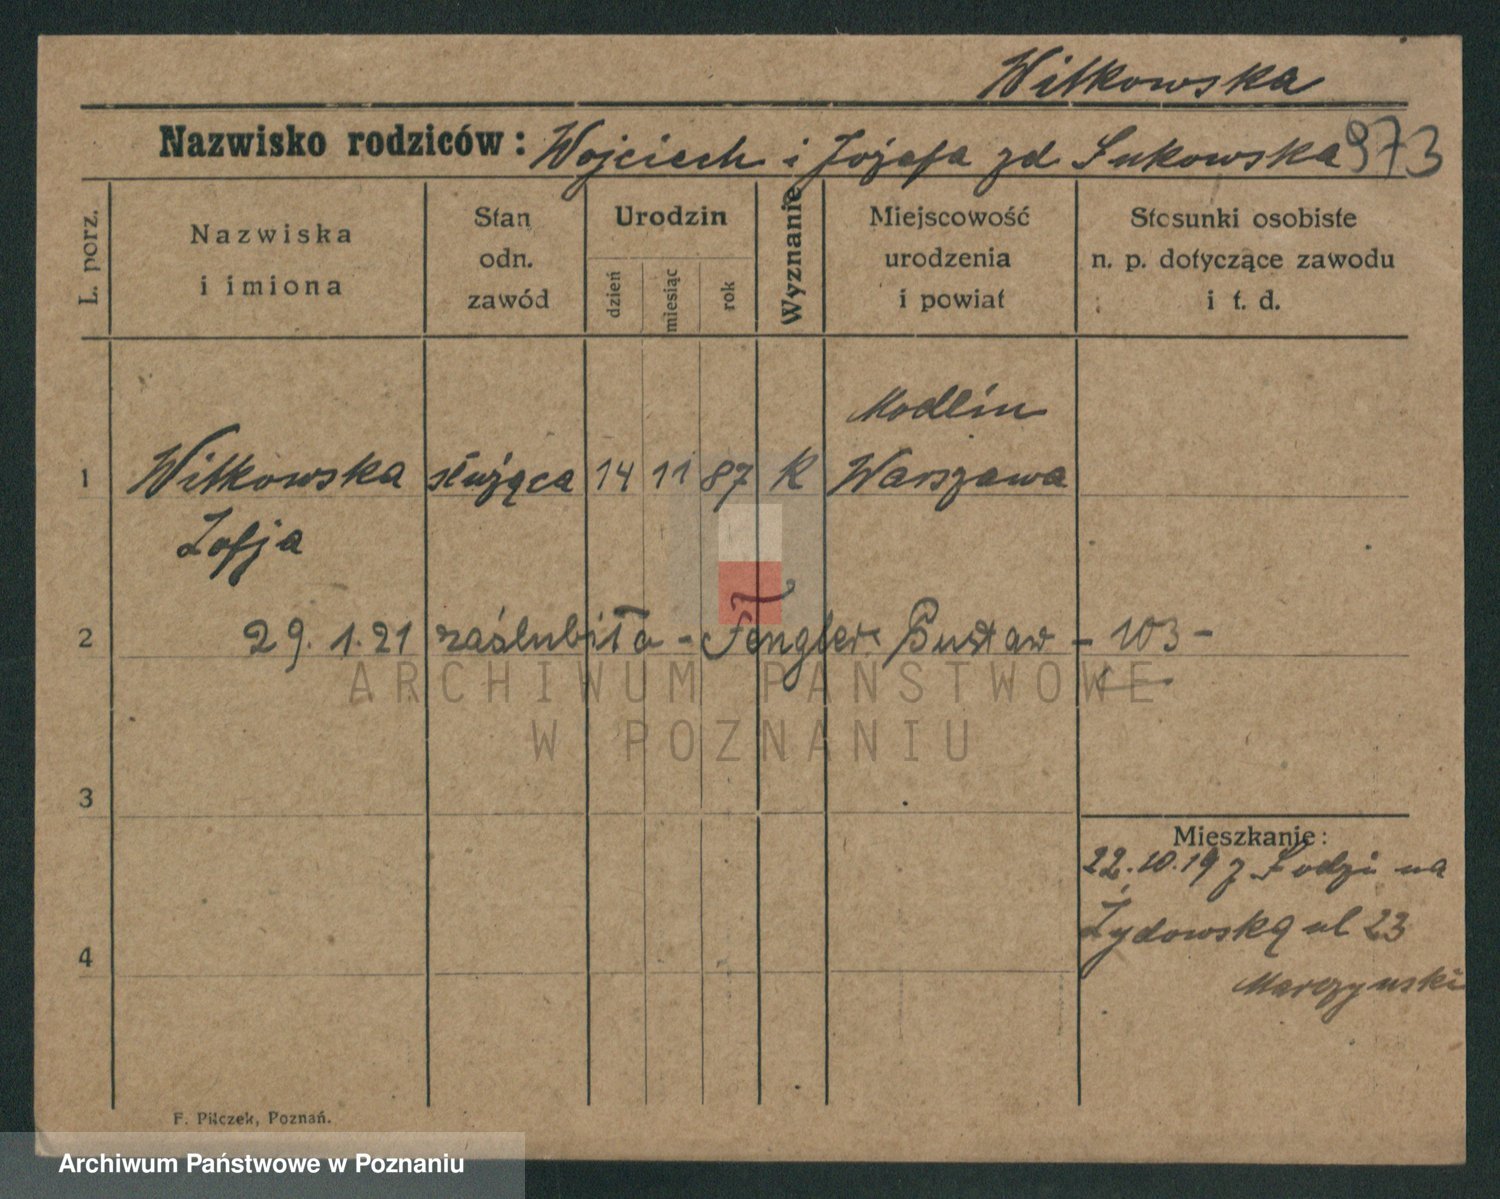 Witkowska
Nazwisko rodziców: Wojciech i Józefa zd Sukowska 973
L. porz.
Nazwiska i imiona
Stan odn. zawód
Urodzin
dzień
miesiąc
rok
Wyznanie
Miejscowość urodzenia i powiat
Stosunki osobiste n. p. dotyczące zawodu i t. d.
Modlin
1 Witkowska służąca 14 11 87 K Warszawa
Zofja
2 29.1.21 zaślubiła - Fengler Gustaw - 103 -
3
Mieszkanie:
22.10.19 z Łodzi na
Żydowską ul 23
4
Marczynski
F. Pilczek, Poznań.
ARCHIWUM PAŃSTWOWE
W POZNANIU
Archiwum Państwowe w Poznaniu